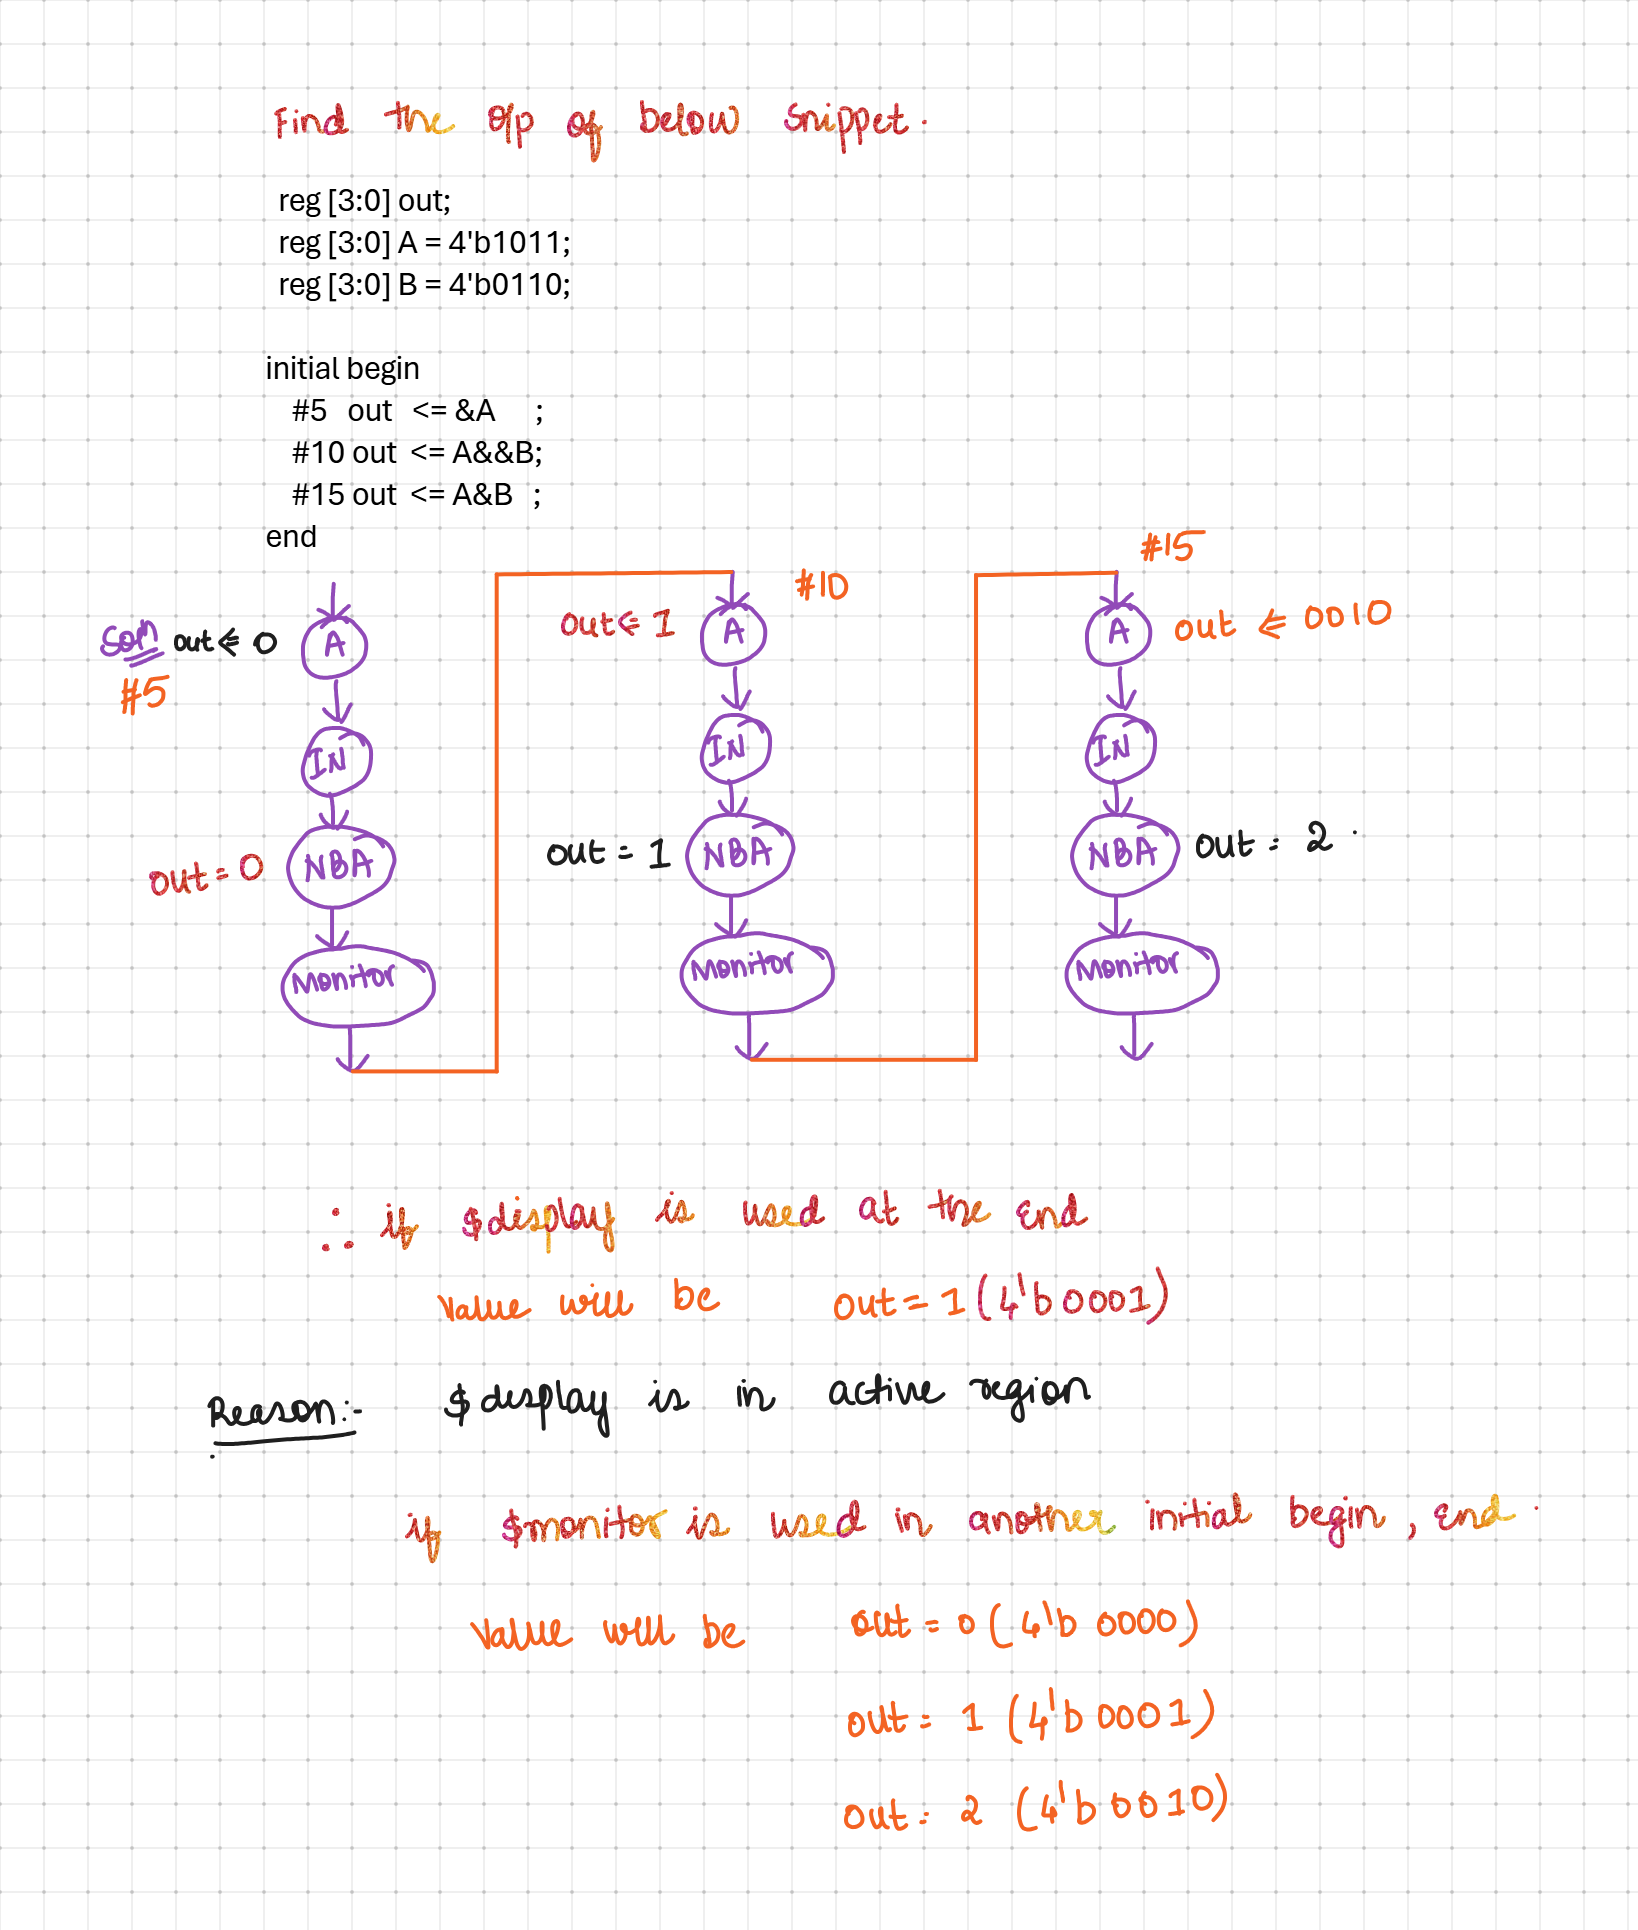 Find the O/p of below snippet.
reg [3:0] out;
reg [3:0] A = 4'b1011;
reg [3:0] B = 4'b0110;
initial begin
#5 out <= &A ;
#10 out <= A&&B;
#15 out <= A&B ;
end
#15
#10
Soln out <= 0 A
out <= 1 A
A out <= 0010
#5
IN IN IN
out = 0 NBA
out = 1 NBA
NBA out = 2 .
Monitor Monitor Monitor
∴ if $display is used at the End
Value will be out = 1 (4'b0001)
Reason:- $display is in active region
if $monitor is used in another initial begin, End .
Value will be out = 0 (4'b 0000)
out = 1 (4'b 0001)
out = 2 (4'b 0010)